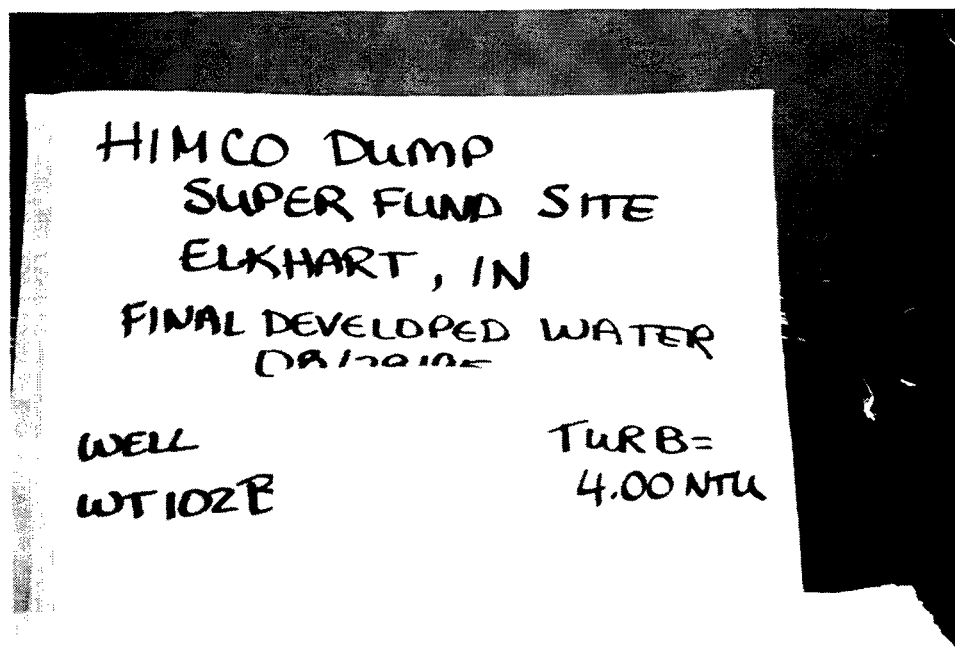 HIMCO DUMP
SUPER FUND SITE
ELKHART, IN
FINAL DEVELOPED WATER
WELL
TURB=
WT102B
4.00 NTU